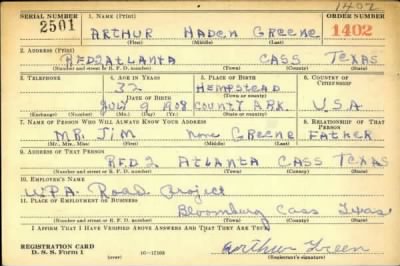 1402
SERIAL NUMBER 1. NAME (Print) ORDER NUMBER
2501 ARTHUR HADEN GREENE 1402
(First) (Middle) (Last)
2. ADDRESS (Print)
RFD2 ATLANTA CASS TEXAS
(Number and street or R. F. D. number) (Town) (County) (State)
3. TELEPHONE 4. AGE IN YEARS 5. PLACE OF BIRTH 6. COUNTRY OF CITIZENSHIP
32 HEMPSTEAD
DATE OF BIRTH (Town or county)
JULY 9 1908 COUNTY ARK. U.S.A
(Exchange) (Number) (Mo.) (Day) (Yr.) (State or country)
7. NAME OF PERSON WHO WILL ALWAYS KNOW YOUR ADDRESS 8. RELATIONSHIP OF THAT PERSON
MR. JIM none GREENE FATHER
(Mr., Mrs., Miss) (First) (Middle) (Last)
9. ADDRESS OF THAT PERSON
RFD 2 ATLANTA CASS TEXAS
(Number and street or R. F. D. number) (Town) (County) (State)
10. EMPLOYER'S NAME
W.P.A. Road Project
11. PLACE OF EMPLOYMENT OR BUSINESS
Bloomburg Cass Texas
(Number and street or R. F. D. number) (Town) (County) (State)
I AFFIRM THAT I HAVE VERIFIED ABOVE ANSWERS AND THAT THEY ARE TRUE.
REGISTRATION CARD
D. S. S. Form 1 (over) 16—17105 Arthur Green
(Registrant's signature)